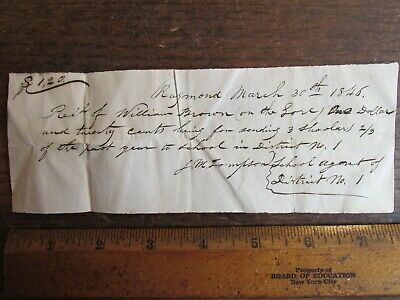 $1,20
Raymond March 30th 1846,
Rec'd of William Brown on the Gore) One Dollar
and twenty cents being for sending 3 Shoolars 2/3
of the past year to School in District No. 1
School agent of
District No. 1
1 2 3 4 5 6 7
Property of
BOARD OF EDUCATION
New York City